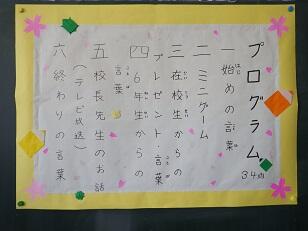 プログラム
34n
一 始めの言葉
二 ミニゲーム
三 在校生からの
プレゼント・言葉
四 6年生からの
言葉
五 校長先生のお話
(テレビ放送)
六 終わりの言葉